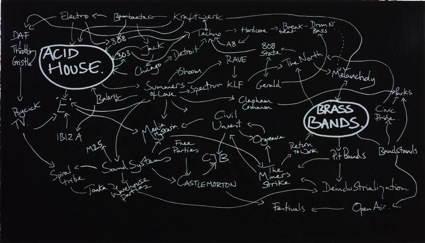 Electro
Kraftwerk
DAF
Throbbing
Gristle
ACID
HOUSE.
808
303
Jack
Chicago
Detroit
Techno
Hardcore
Break
beat
Drum N
Bass
A8
808
State
The North
Melancholy
Shoom
RAVE
Summer
of Love
Spectrum
KLF
Gerald
Balearic
Clapham
Common
BRASS
BANDS.
Parks
Civic
Pride
Bandstands
Psychick
TV
E
IBIZA
Media
Hysteria
Civil
Unrest
Orgreave
M25
Free
Parties
Sound Systems
CJB
CASTLEMORTON
Spiral
Tribe
Warehouse
parties
The
Miners
Strike
Return
to Work
Pit Bands
Deindustrialization
Festivals
Open Air.